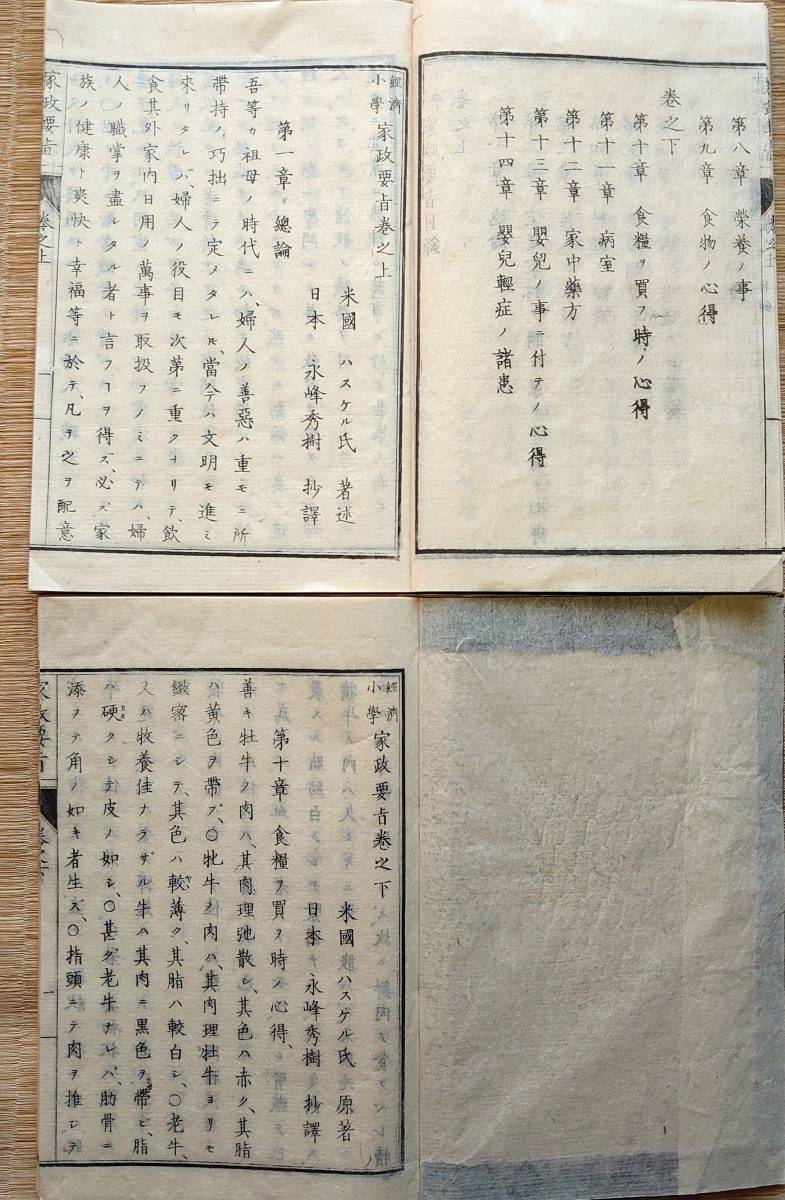 第八章 榮養ノ事
第九章 食物ノ心得
卷之下
第十章 食糧ヲ買フ時ノ心得
第十一章 病室
第十二章 家中藥方
第十三章 嬰兒ノ事ニ付テノ心得
第十四章 嬰兒輕症ノ諸患
經濟小學 家政要旨卷之上
米國 ハスケル氏 著述
日本 永峰秀樹 抄譯
第一章 總論
吾等カ祖母ノ時代ニハ、婦人ノ善惡ハ重モニ所
帶持ノ巧拙ニテ定メタレ𪜈、當今ハ文明モ進ミ
來リタレバ、婦人ノ役目モ次第ニ重クナリテ、飲
食其外家内日用ノ萬事ヲ取扱フノミニテハ、婦
人ノ職掌ヲ盡シタル者ト言フヿヲ得ズ、必ズ家
族ノ健康ト爽快ト幸福等ニ於テ、凡ヲ之ヲ配意
家政要旨 卷之上
經濟小學 家政要旨卷之下
米國ハスケル氏 原著
日本 永峰秀樹 抄譯
第十章 食糧ヲ買フ時ノ心得、
善キ牡牛ノ肉ハ、其肉理弛散シ、其色ハ赤ク、其脂
ハ黃色ヲ帶ブ、〇牝牛ノ肉ハ、其肉理牡牛ヨリモ
緻密ニシテ、其色ハ較薄ク、其脂ハ較白シ、〇老牛、
又ハ牧養佳ナラザル牛ハ其肉ニ黒色ヲ帶ビ、脂
ハ硬クシテ皮ノ如シ、〇甚ダ老牛ナレバ、肋骨ニ
添フテ角ノ如キ者生ズ、〇指頭ニテ肉ヲ推シテ
家政要旨